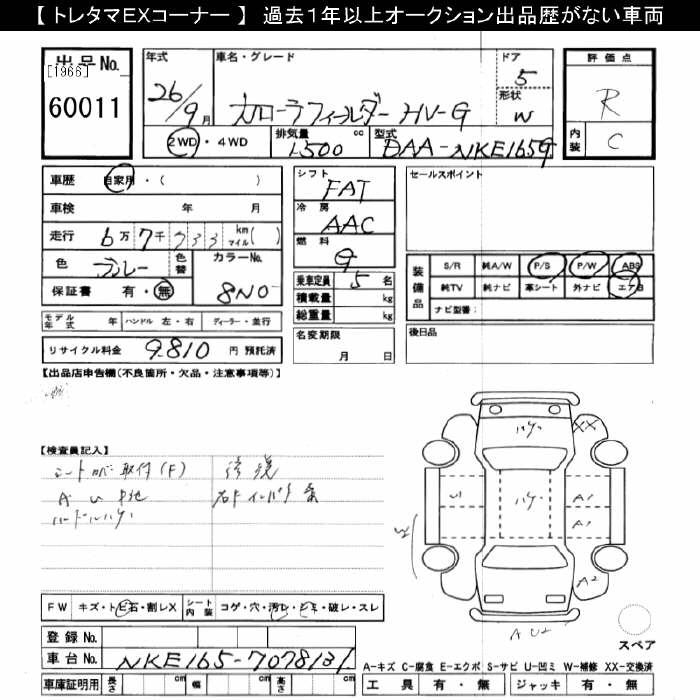 【トレタマEXコーナー】 過去1年以上オークション出品歴がない車両
出品No.
[1966]
60011
年式
26/9月
車名・グレード
カローラフィールダー HV-G
ドア
5
形状
W
評価点
R
内装
C
2WD・4WD
排気量 cc
1500
型式
DAA-NKE165G
車歴 自家用・( )
車検 年 月
走行 6万7千733 km マイル( )
色 ブルー 色替 カラーNo. 8N0
保証書 有・無
モデル年式 年 ハンドル 左・右 ディーラー・並行
リサイクル料金 9,810 円 預託済
シフト
FAT
冷房
AAC
燃料
G
乗車定員 5 名
積載量 kg
総重量 kg
名変期限
月 日
セールスポイント
装備品
S/R 純A/W P/S P/W ABS
純TV 純ナビ 革シート 外ナビ エアB
ナビ型番:
後日品
【出品店申告欄(不良箇所・欠品・注意事項等)】
【検査員記入】
シートカバー取付(F)
修復
右ドインパク
ハンドルハゲ
ハゲ
XX
ハゲ
U
A1
A1
W
A2
A U2
スペア
FW キズ・トビ石・割レX シート内装 コゲ・穴・汚レ・シミ・破レ・スレ
登録No.
車台No. NKE165-7078131
車庫証明用 長さ cm 幅 cm 高さ cm
A-キズ C-腐食 E-エクボ S-サビ U-凹ミ W-補修 XX-交換済
工具 有・無 ジャッキ 有・無